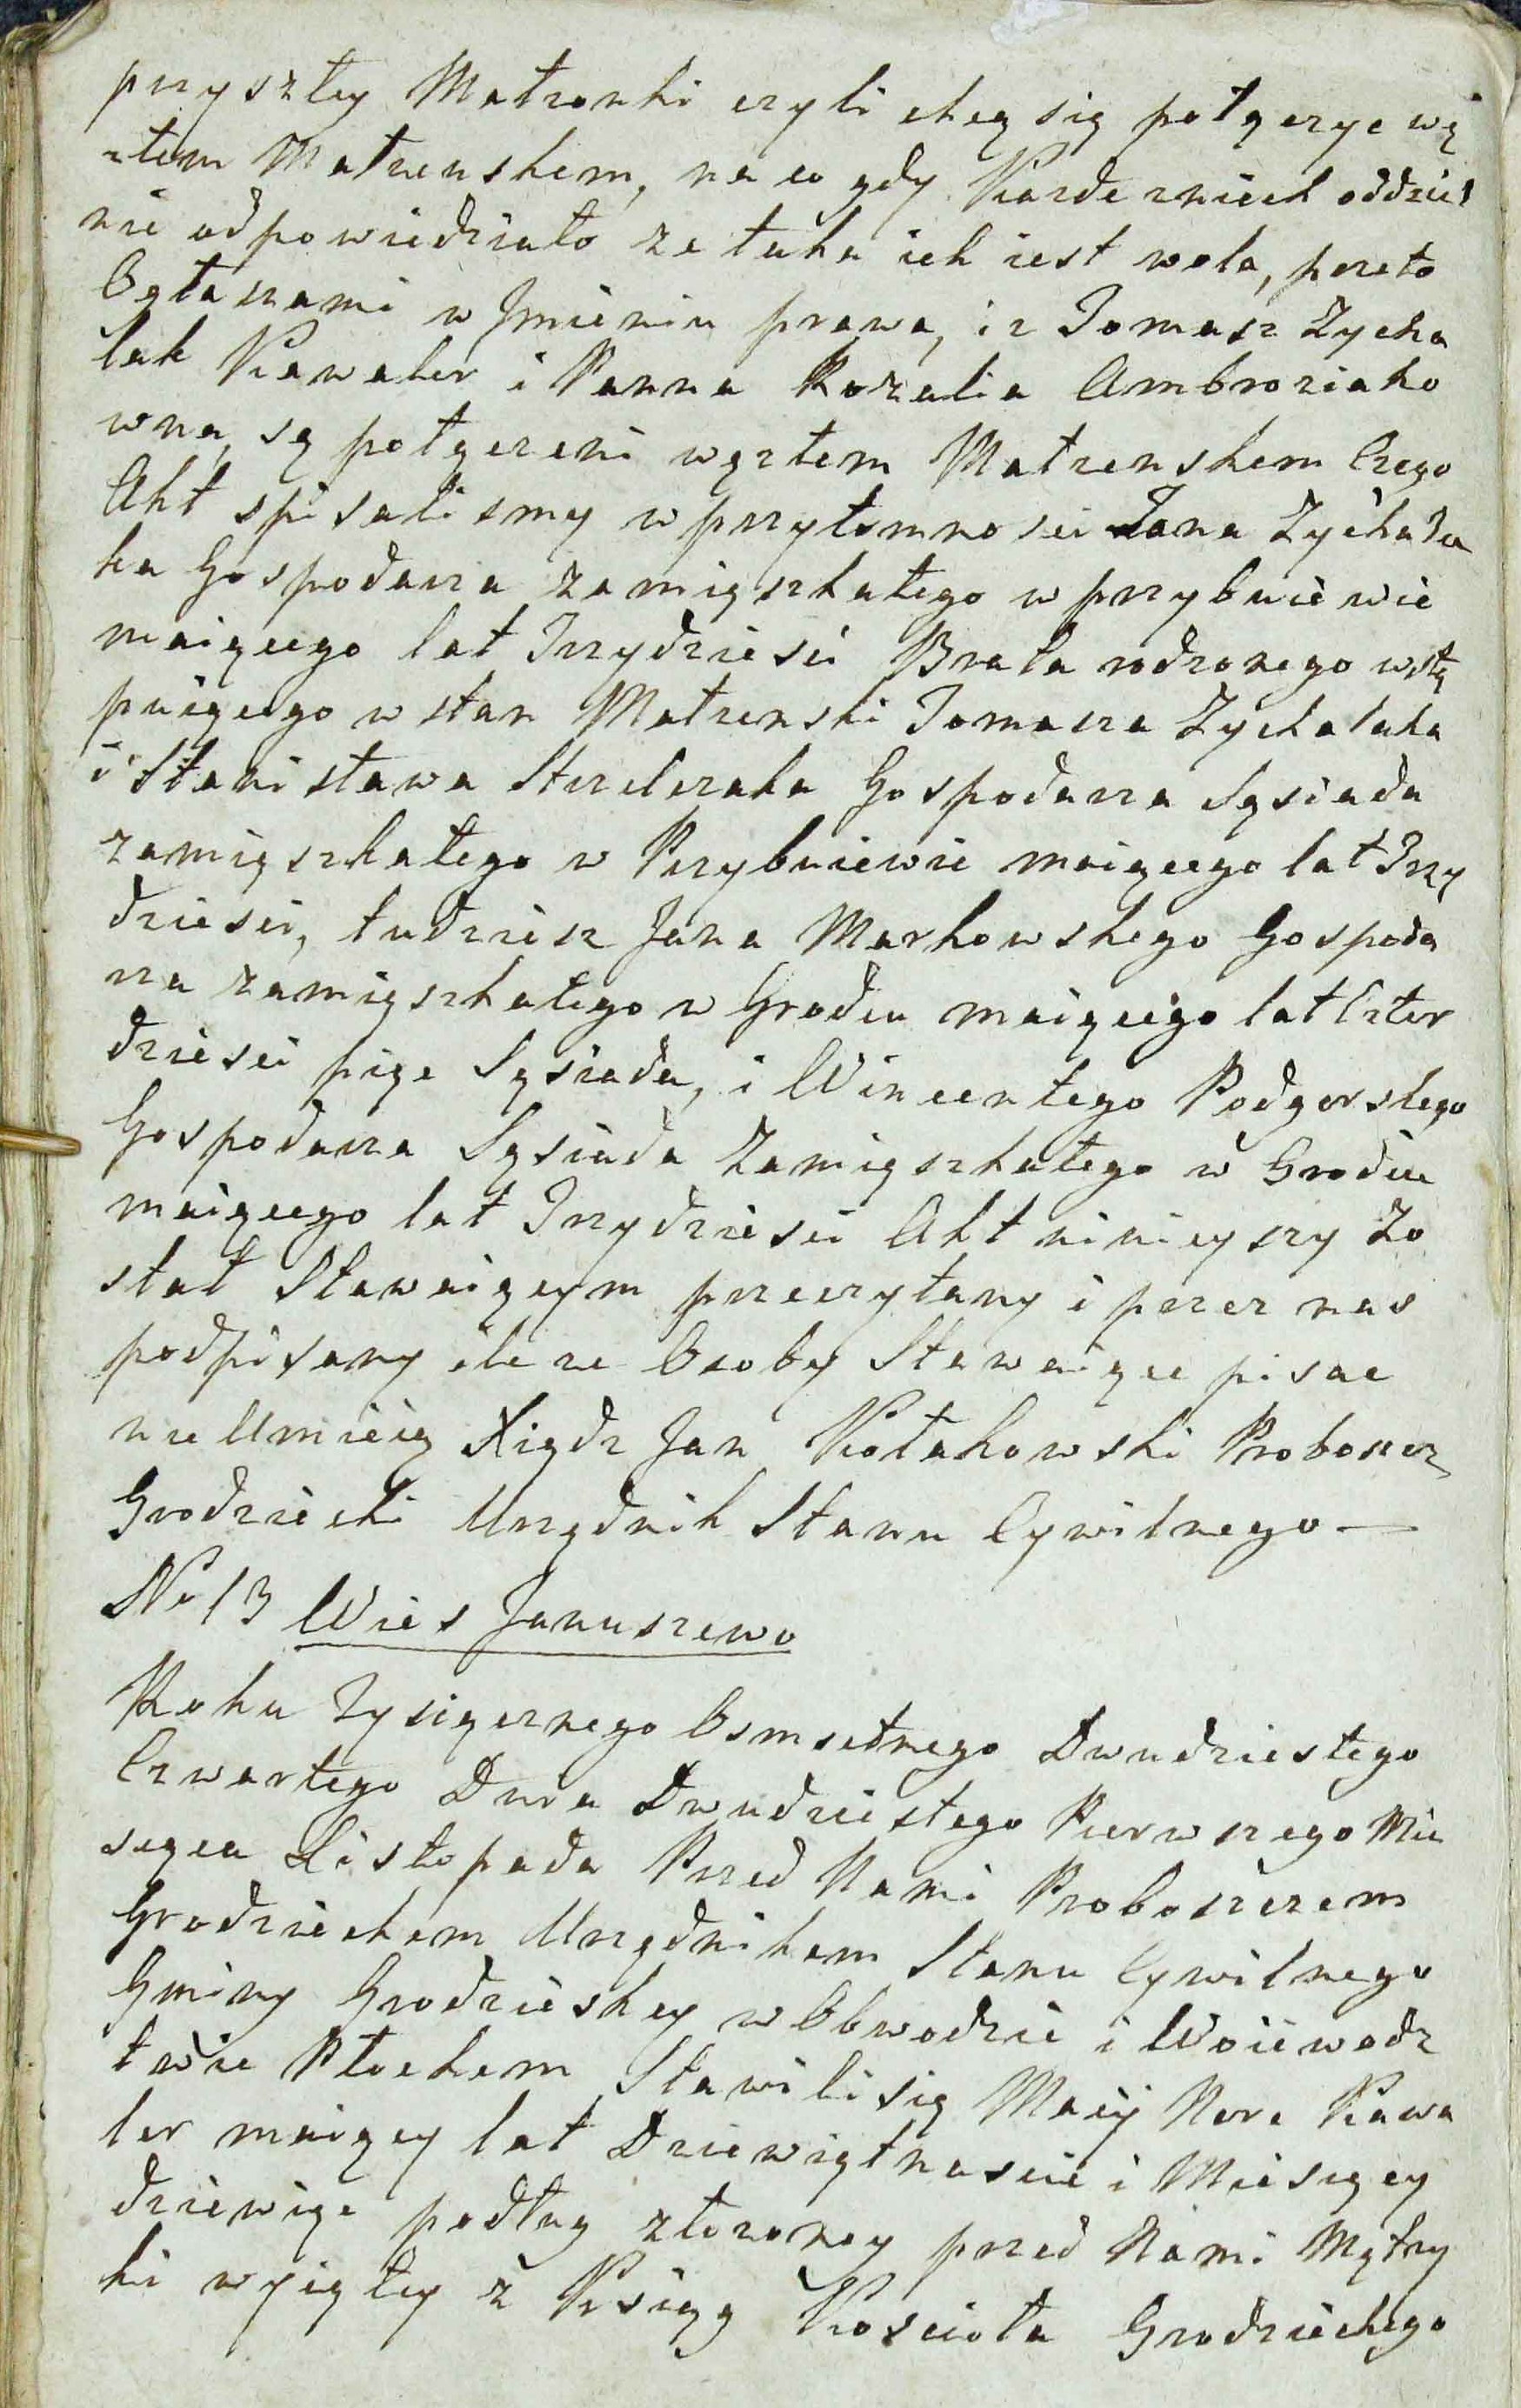 przyszłey Małzonki czyli chcą się połączyc wę
złem Małzenskem, na co gdy Kazde zniech oddziel
nie odpowiedziało ze taka ich iest wola, przeto
Ogłaszami w Jmieniu prawa, iz Tomasz Zycha
lak Kawaler i Panna Rozalia Ambroziako
wna, są połączeni węzłem Małzenskem Czego
Akt spisalismy w przytomnosci Jana Zychala
ka Gospodarza zamięszkałego w przybuiewie
maiącego lat Trzydziesci Brata rodzonego wstę
puiącego w stan Małzenski Tomasza Zychalaka
i Stanisława Strzelczaka Gospodarza Sąsiada
zamięszkałego w Przybuiewie maiącego lat Trzy
dziesci, tudziesz Jana Markowskego Gospoda
rza zamięszkałego w Grodzu maiącego lat Czter
dziesci pięc Sąsiada, i Wincentego Podgorskego
Gospodarza Sąsiada Zamięszkałego w Grodzu
maiącego lat Trzydziesci Akt ninieyszy Zo
stał Stawaiącym przeczytany i przez nas
podpisany ile ze Osoby Stawaiące pisac
nie Umieią Xiądz Jan Kołakowski Proboszcz
Grodziecki Urzędnik Stanu Cywilnego —
No 13 Wies Januszewo
Roku Tysiącznego Osmsetnego Dwudziestego
Czwartego Dnia Dwudziestego Pierwszego Mie
siąca Listopada Przed Nami Proboszczem
Grodzieckem Urzędnikem Stanu Cywilnego
Gminy Grodzieskey w Obwodzie i Woiewodz
twie Płockem Stawili się Maciy Nere Kawa
ler maiący lat Dziewiętnascie i Miesięcy
dziewięc podług złozoney przed Nami Mętry
ki wyiętey z Ksiąg Koscioła Grodzieckego